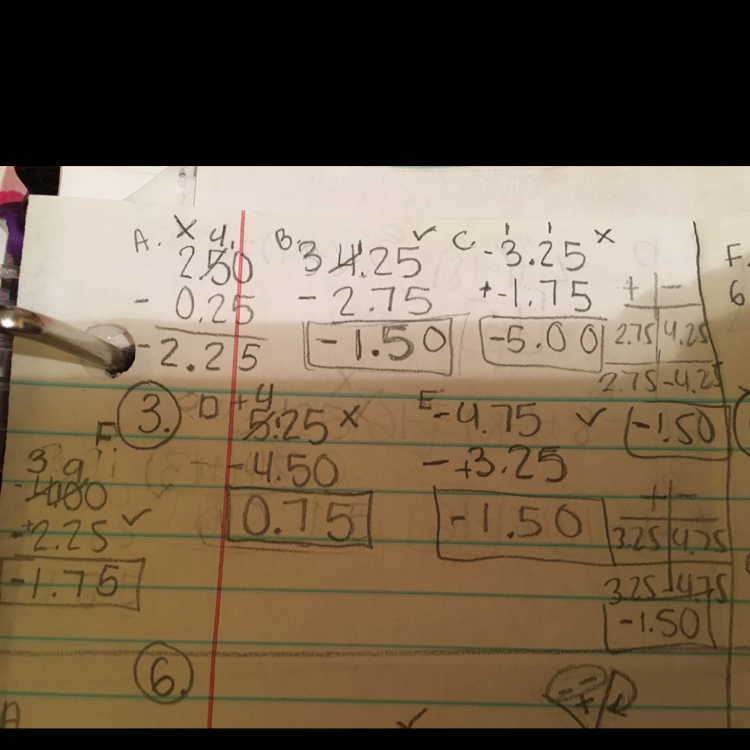 A. X 4 B. ✓ C. ı ı x
2.50 3 4.25 -3.25 F.
- 0.25 - 2.75 + -1.75 + − 6
-2.25 -1.50 -5.00 2.75 4.25
2.75 -4.25
3. D + 4 E ✓ -1.50
5.25 x -4.75
F. 3 9 -4.50 - +3.25 + −
-4.00 0.75 -1.50 3.25 4.75
-+2.25 ✓ 3.25 -4.75
-1.75 -1.50
6.
A ✓ - - +